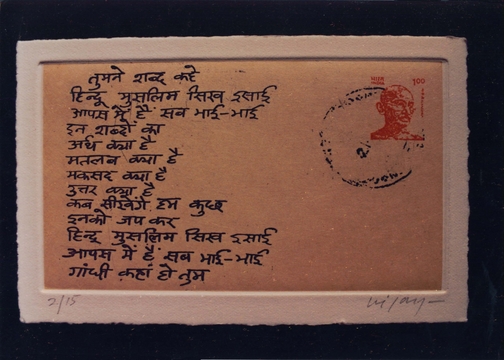 तुमने शब्द कहे
हिन्दू मुसलिम सिख इसाई
आपस में हैं सब भाई-भाई
इन शब्दों का
अर्थ क्या है
मतलब क्या है
मकसद क्या है
उत्तर क्या है
कब सीखेंगे हम कुछ
इनको जप कर
हिन्दू मुसलिम सिख इसाई
आपस में हैं सब भाई-भाई
गांधी कहां हो तुम
भारत INDIA 100
2/15